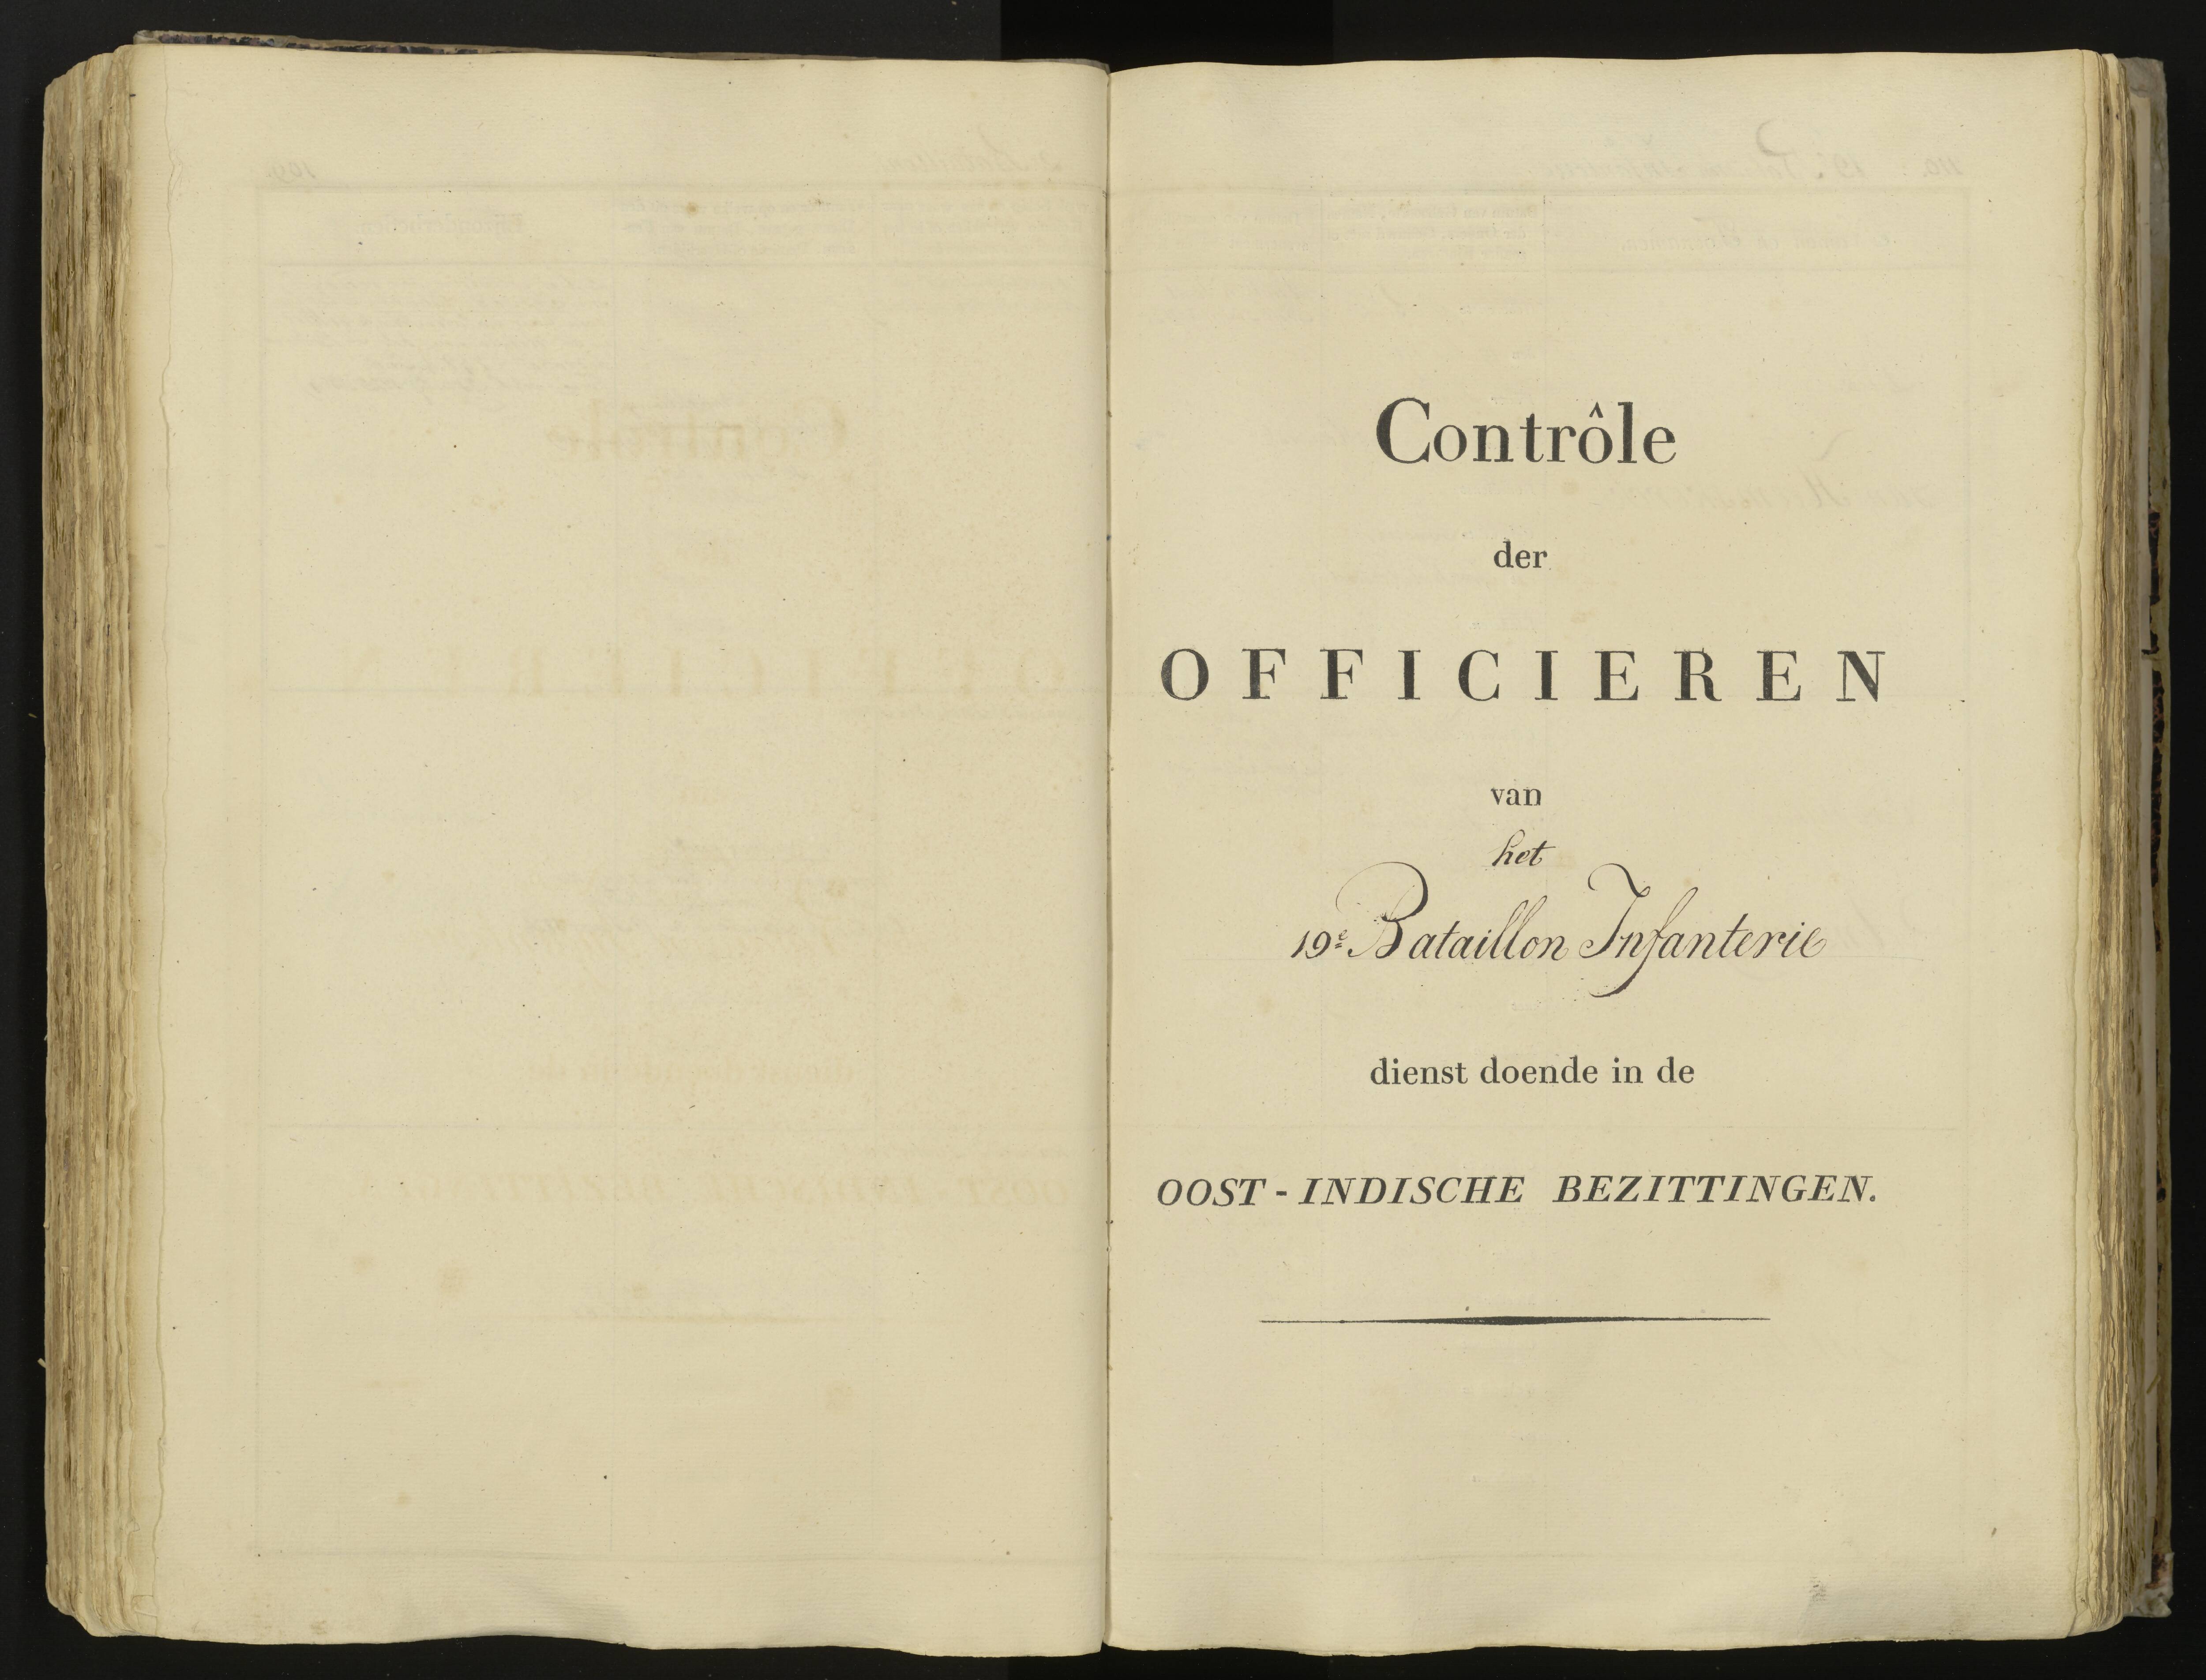 Contrôle
der
OFFICIEREN
van
het
19e Bataillon Infanterie
dienst doende in de
OOST-INDISCHE BEZITTINGEN.